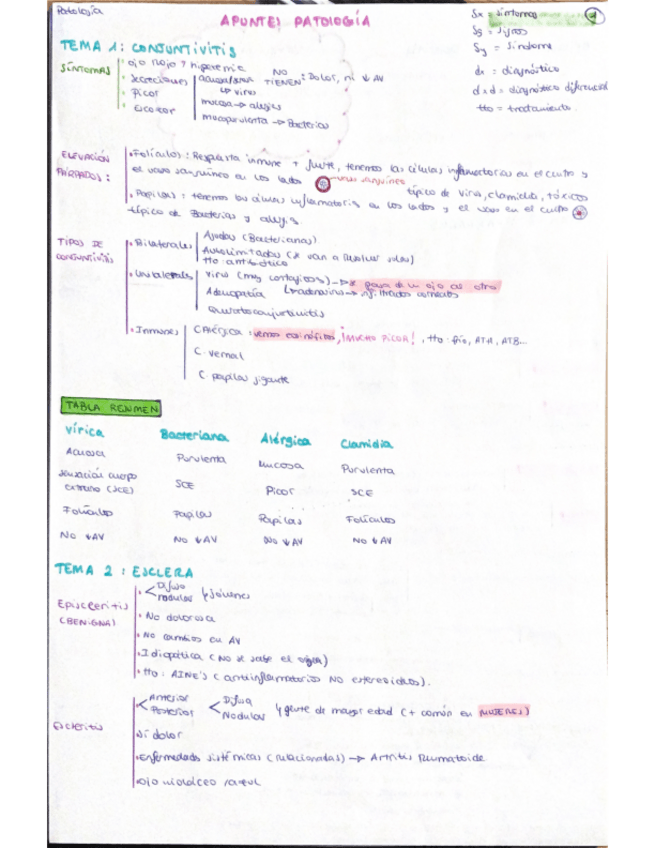 Patología
APUNTES PATOLOGÍA
Sx = síntomas
Sg = signos
Sy = síndrome
dx = diagnóstico
dxd = diagnóstico diferencial
tto = tratamiento
TEMA 1: CONJUNTIVITIS
SÍNTOMAS
· ojo rojo > hiperemia
· secreciones
· Picor
· Escozor
↳ virus
mucosa → alergias
mucopurulenta → Bacterias
NO TIENEN: Dolor, ni ↓ AV
ELEVACIÓN PÁRPADOS:
· Folículos: Respuesta inmune + fuerte, tenemos las células inflamatorias en el centro y
el vaso sanguíneo en los lados
vasos sanguíneos
típico de virus, clamidia, tóxicos
· Papilas: tenemos las células inflamatorias en los lados y el vaso en el centro
típico de Bacterias y alergias.
TIPOS DE CONJUNTIVITIS
· Bilaterales
Agudas (Bacterianas)
Autolimitadas (se van a resolver solas)
tto: antibiótico
· Unilaterales
virus (muy contagiosos) → se pasa de un ojo al otro
Adenopatía
↳ adenovirus → infiltrados corneales
Queratoconjuntivitis
· Inmunes
C. Alérgica: vemos eosinófilos, ¡MUCHO PICOR!, tto: frío, ATH, ATB...
C. vernal
C. papilas gigante
TABLA RESUMEN
Vírica Bacteriana Alérgica Clamidia
Acuosa Purulenta Mucosa Purulenta
Sensación cuerpo extraño (SCE) SCE Picor SCE
Folículos Papilas Papilas Folículos
No ↓ AV No ↓ AV No ↓ AV No ↓ AV
TEMA 2: ESCLERA
Episcleritis (BENIGNA)
· Difusa
nodular
jóvenes
· No dolorosa
· No cambios en AV
· Idiopática (No se sabe el origen)
· tto: AINE's (antiinflamatorios NO esteroideos).
Escleritis
· Anterior
Posterior
Difusa
Nodular
gente de mayor edad (+ común en MUJERES)
· Sí dolor
· Enfermedades sistémicas (relacionadas) → Artritis Reumatoide
· Ojo violáceo /azul